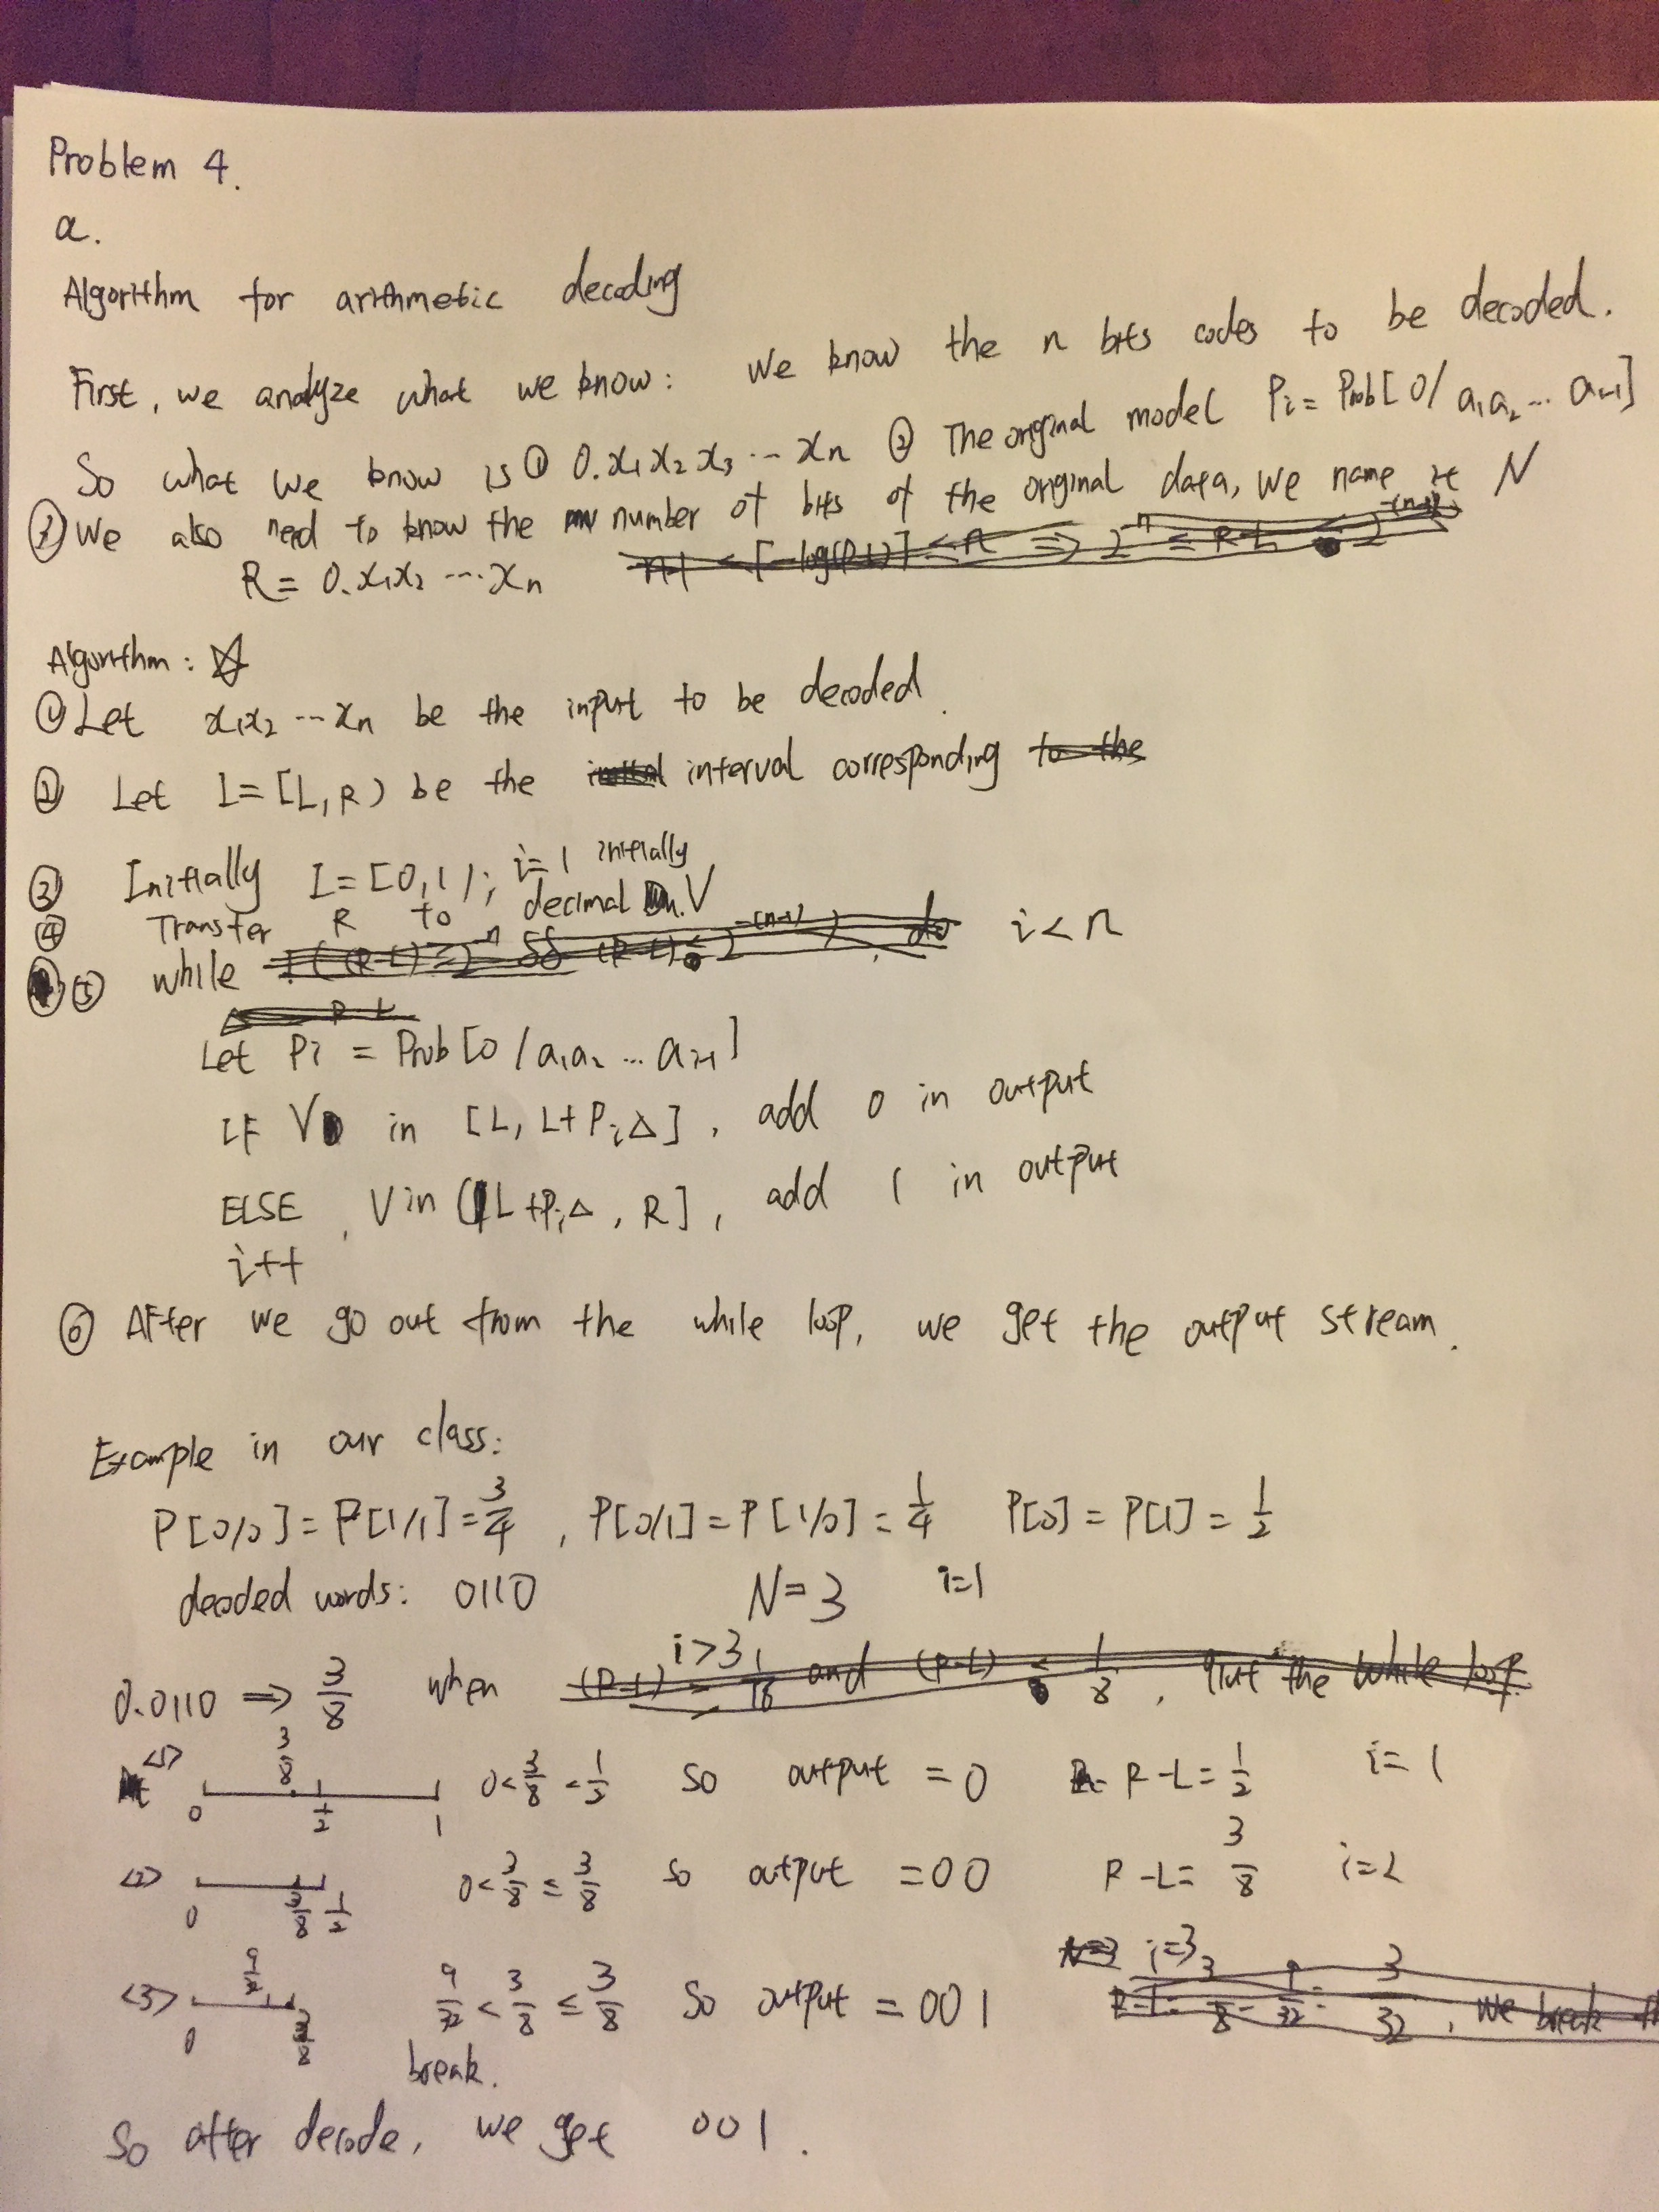 Problem 4.
a.
Algorithm for arithmetic decoding
First, we analyze what we know: We know the n bits codes to be decoded.
So what we know is ① 0.x₁x₂x₃...xₙ ② The original model Pᵢ = Prob[0/a₁a₂...aᵢ₋₁]
③ We also need to know the number of bits of the original data, we name it N
R = 0.x₁x₂...xₙ
Algorithm: ☆
① Let x₁x₂...xₙ be the input to be decoded.
② Let I=[L,R) be the interval corresponding
③ Initially I=[0,1); i=1 initially
④ Transfer R to decimal V
⑤ while i<n
Let Pi = Prob[0/a₁a₂...aᵢ₋₁]
IF V in [L, L+PᵢΔ], add 0 in output
ELSE, V in (L+PᵢΔ, R], add 1 in output
i++
⑥ After we go out from the while loop, we get the output stream.
Example in our class:
P[0/0] = P[1/1] = 3/4, P[0/1] = P[1/0] = 1/4 P[0] = P[1] = 1/2
decoded words: 0110 N=3 i=1
0.0110 ⇒ 3/8 when i>3
<1> 0 3/8 1/2 1 0<3/8<1/2 so output =0 R-L=1/2 i=1
<2> 0 3/8 1/2 0<3/8≤3/8 so output =00 R-L=3/8 i=2
<3> 0 9/32 3/8 9/32<3/8≤3/8 so output =001 i=3
break.
So after decode, we get 001.